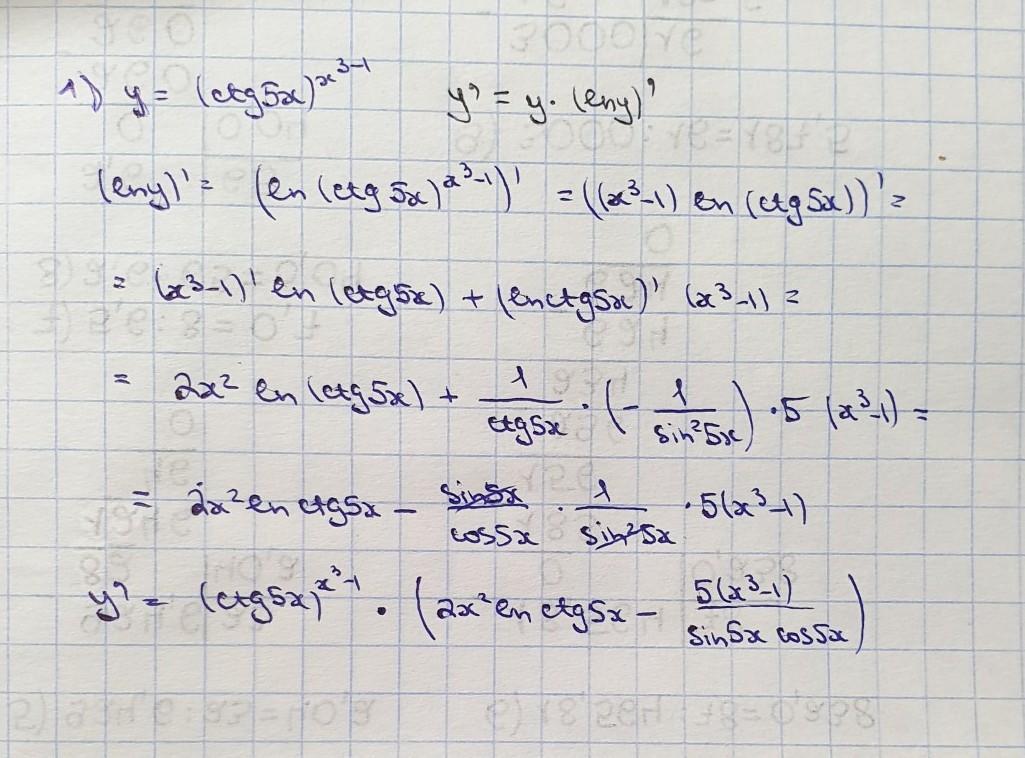 1) y = (ctg5x)^{x^3-1} y' = y · (ln y)'
(ln y)' = (ln (ctg 5x)^{x^3-1})' = ((x^3-1) ln (ctg 5x))' =
= (x^3-1)' ln (ctg5x) + (ln ctg5x)' (x^3-1) =
= 2x^2 ln (ctg5x) + \frac{1}{ctg5x} · (- \frac{1}{sin^2 5x}) · 5 (x^3-1) =
= 2x^2 ln ctg5x - \frac{sin5x}{cos5x} · \frac{1}{sin^2 5x} · 5(x^3-1)
y' = (ctg5x)^{x^3-1} · (2x^2 ln ctg5x - \frac{5(x^3-1)}{sin5x cos5x})